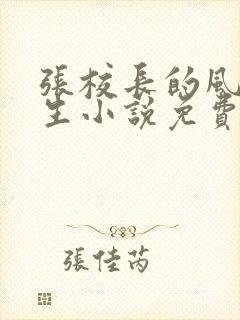 張校長的風
生小說免費
張佳芮